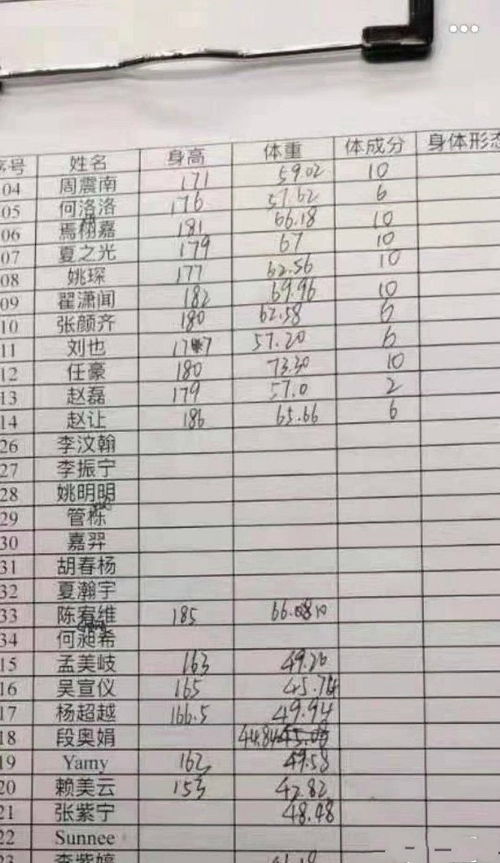 序号 姓名 身高 体重 体成分 身体形态
04 周震南 171 59.02 10
05 何洛洛 176 57.62 6
06 焉栩嘉 181 66.18 10
07 夏之光 179 67 10
08 姚琛 177 62.56 10
09 翟潇闻 182 69.96 10
10 张颜齐 180 62.58 6
11 刘也 177 57.20 6
12 任豪 180 73.30 10
13 赵磊 179 57.0 2
14 赵让 186 65.66 6
26 李汶翰
27 李振宁
28 姚明明
29 管栎
30 嘉羿
31 胡春杨
32 夏瀚宇
33 陈宥维 185
34 何昶希
15 孟美岐 163 49.20
16 吴宣仪 165 45.74
17 杨超越 166.5 49.94
18 段奥娟 44.84
19 Yamy 162 49.58
20 赖美云 153 42.82
21 张紫宁 48.48
22 Sunnee
23 李紫婷